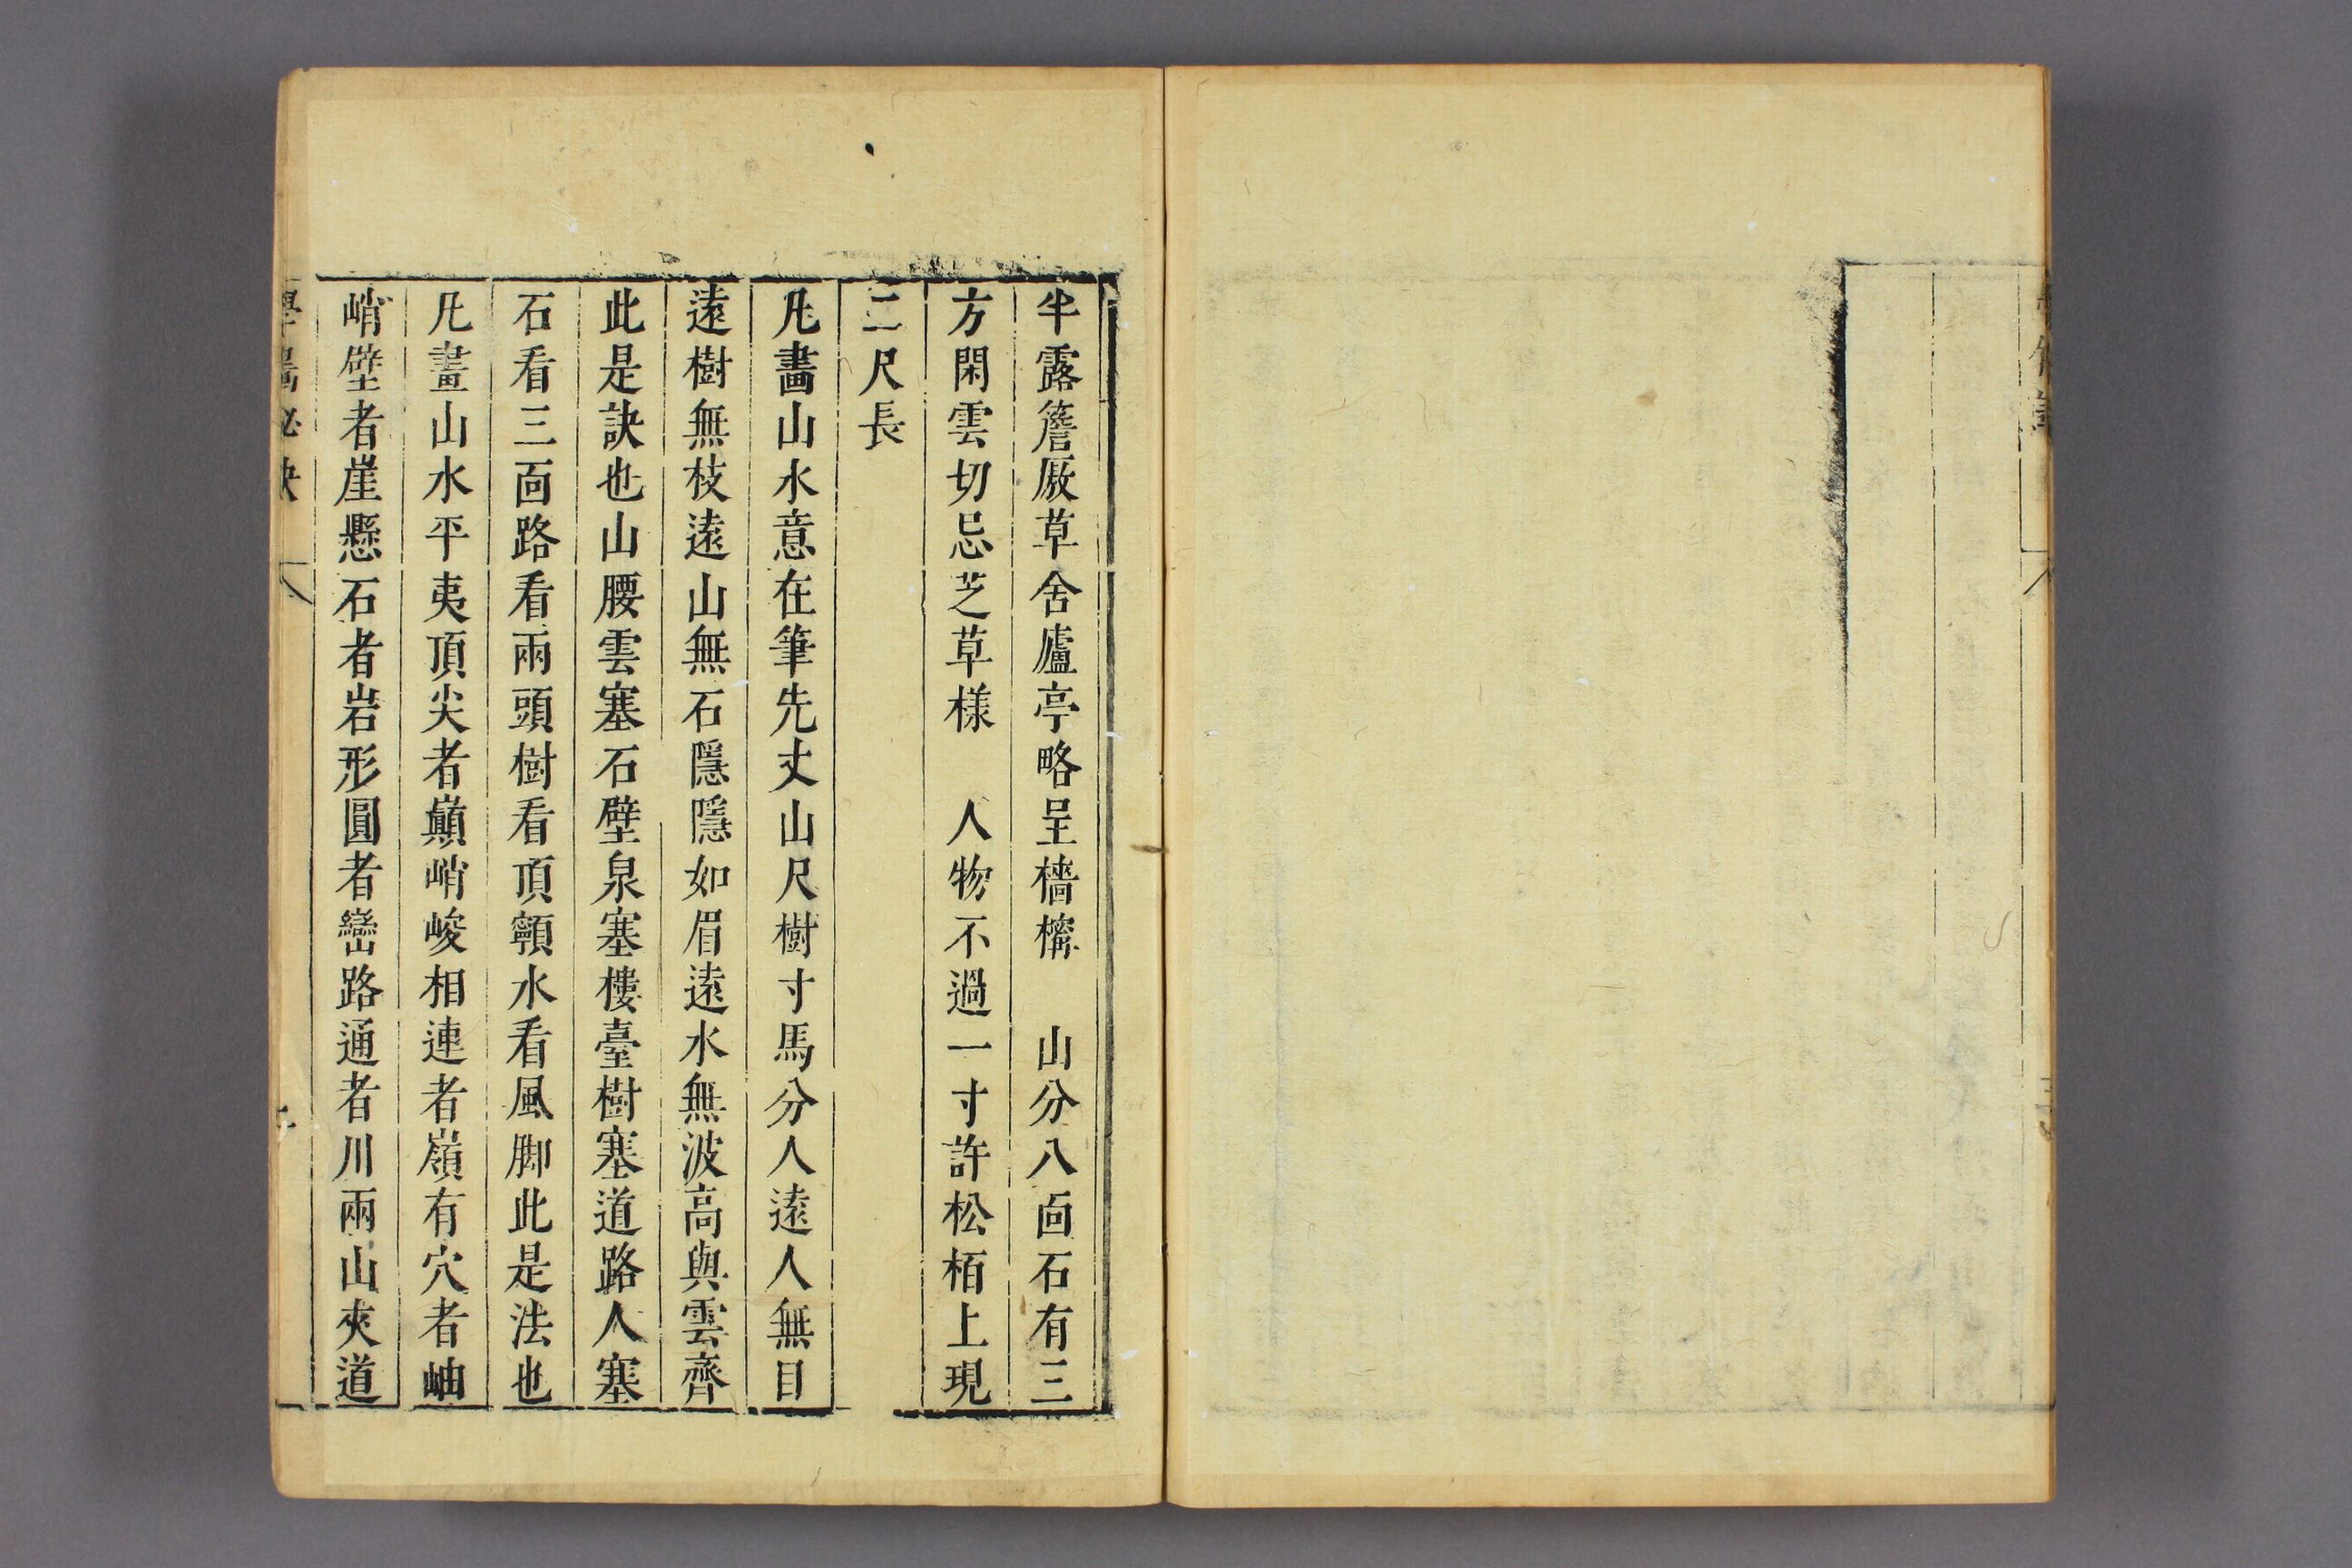 半露簷厫草舍廬亭略呈檣檇　山分八面石有三
方閑雲切忌芝草樣　人物不過一寸許松栢上現
二尺長
凡畵山水意在筆先丈山尺樹寸馬分人遠人無目
遠樹無枝遠山無石隱隱如眉遠水無波高與雲齊
此是訣也山腰雲塞石壁泉塞樓臺樹塞道路人塞
石看三面路看兩頭樹看頂顊水看風脚此是法也
凡畫山水平夷頂尖者巔峭峻相連者嶺有穴者岫
峭壁者崖懸石者岩形圓者巒路通者川兩山夾道
學畵秘訣